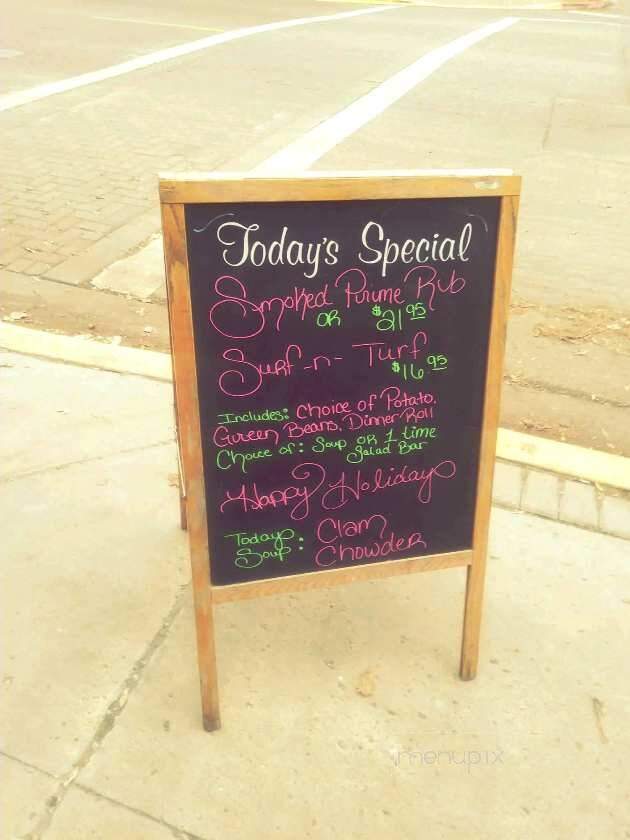 Today's Special
Smoked Prime Rib
OR $21.95
Surf-n-Turf
$16.95
Includes: Choice of Potato,
Green Beans, Dinner Roll
Choice of: Soup OR 1 time
Salad Bar
Happy Holidays
Todays Soup: Clam Chowder
menupix